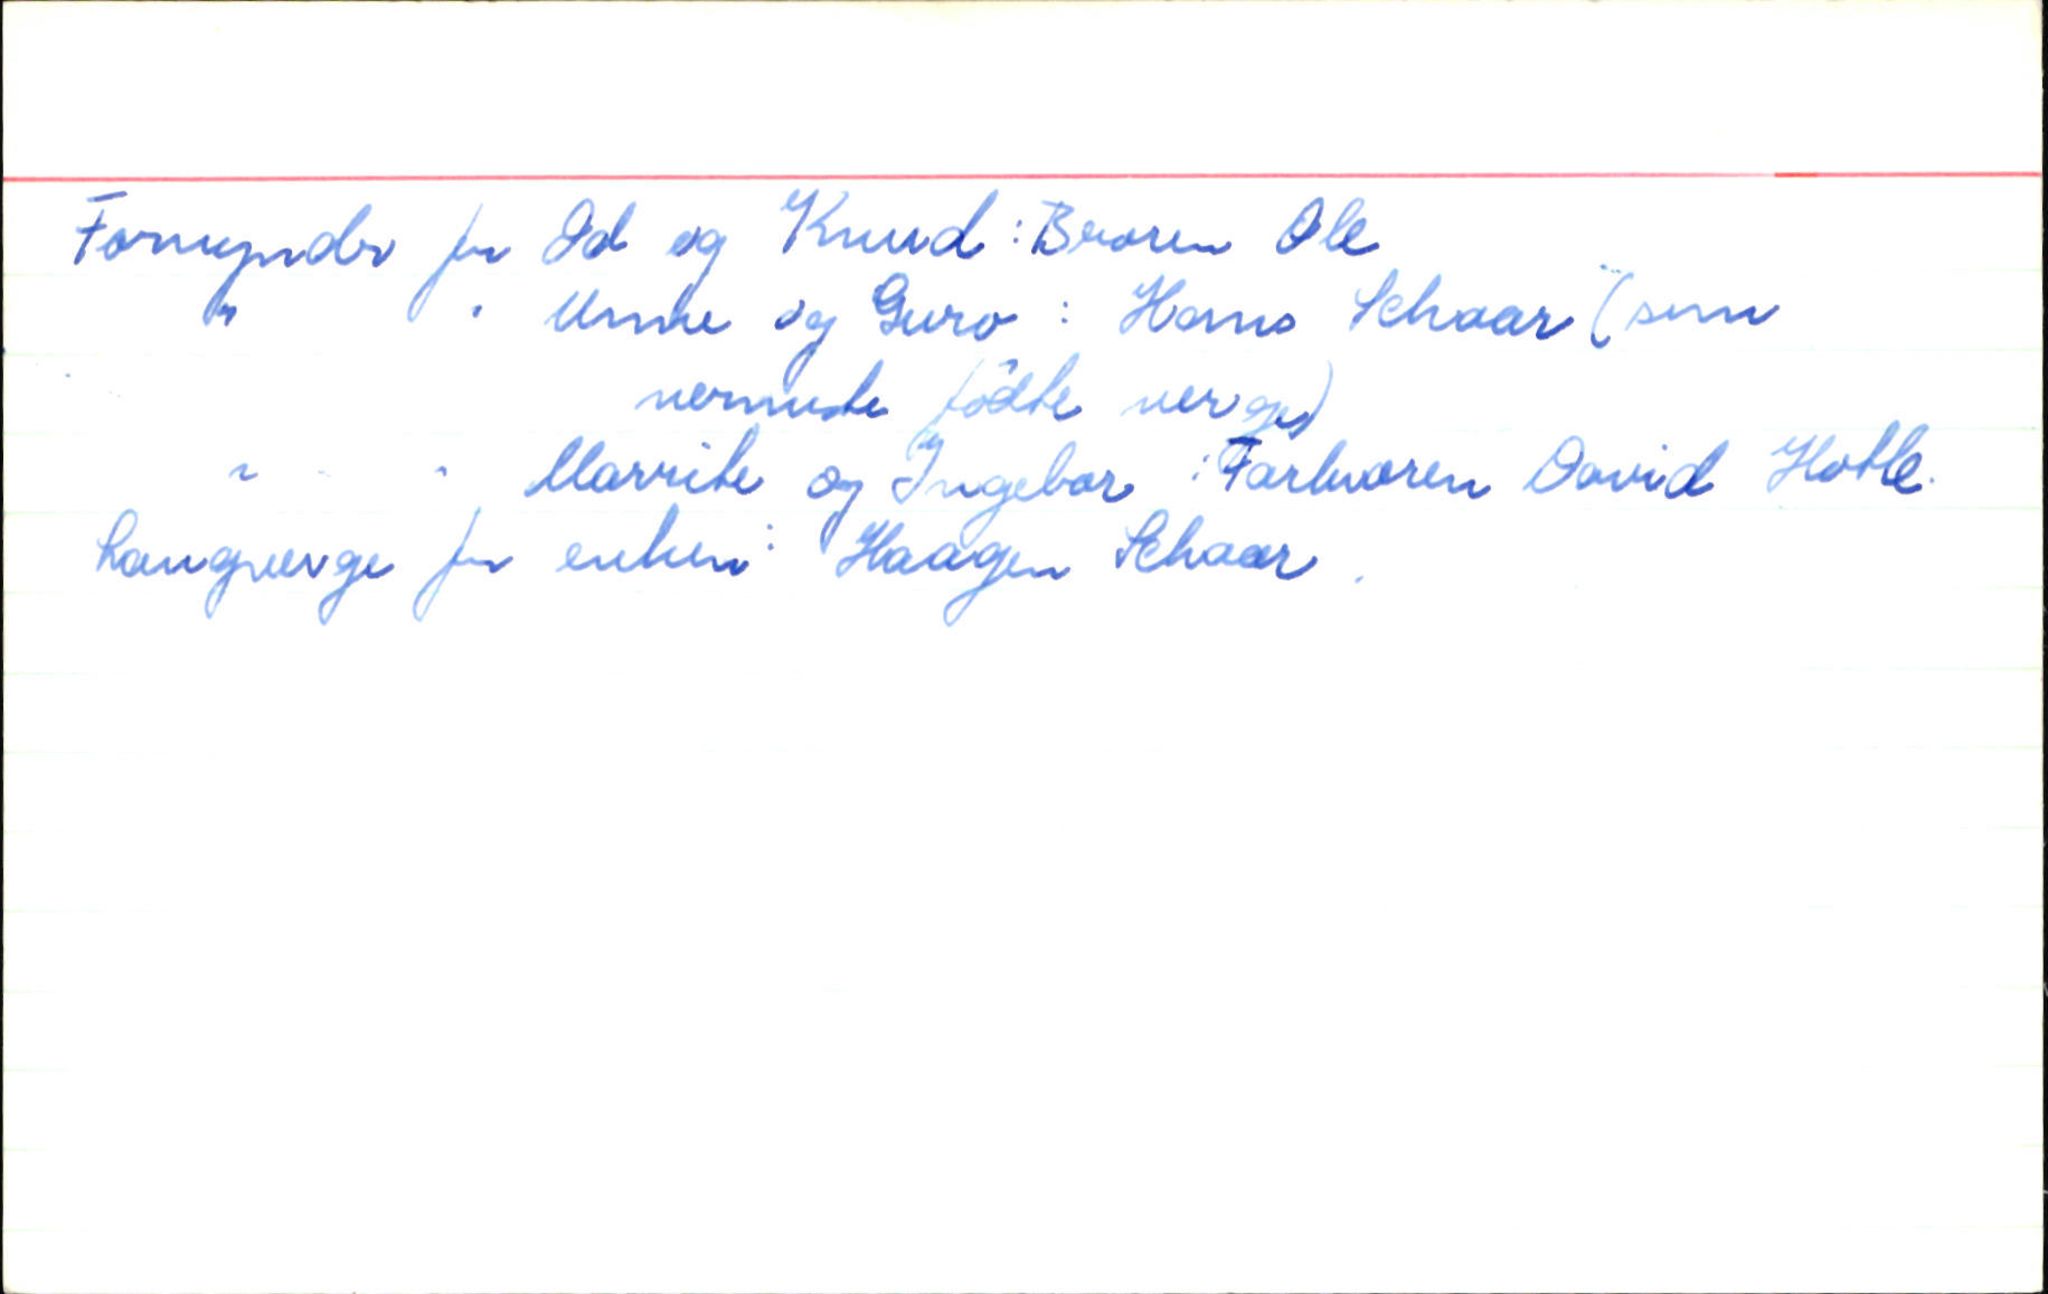 Formynder for Od og Knud : Broren Ole
" " Unne og Guro : Hans Schaar (som
nermeste fødte verge)
" " Marrite og Ingebor : Farbroren David Hotle.
Laugverge for enken : Haagen Schaar.